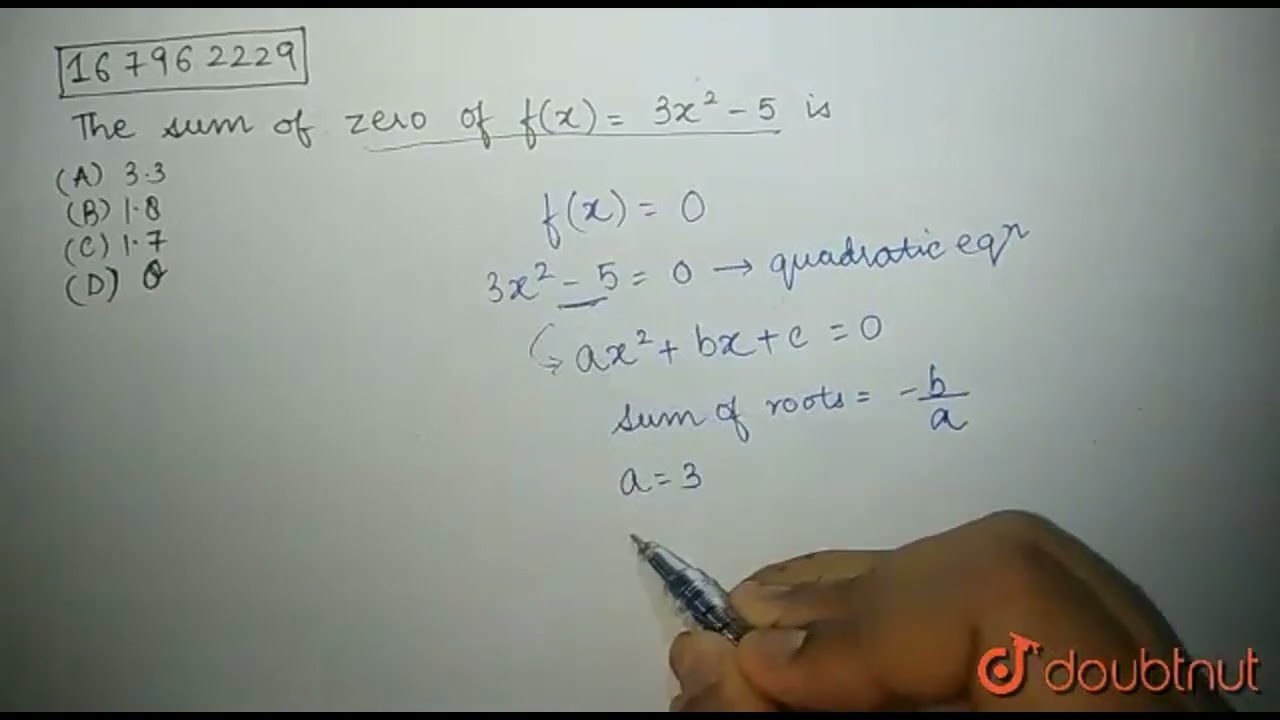 167962229
The sum of zero of f(x) = 3x² - 5 is
(A) 3.3
(B) 1.8
(C) 1.7
(D) 0
f(x) = 0
3x² - 5 = 0 → quadratic eqn
↪ ax² + bx + c = 0
sum of roots = -b/a
a = 3
doubtnut